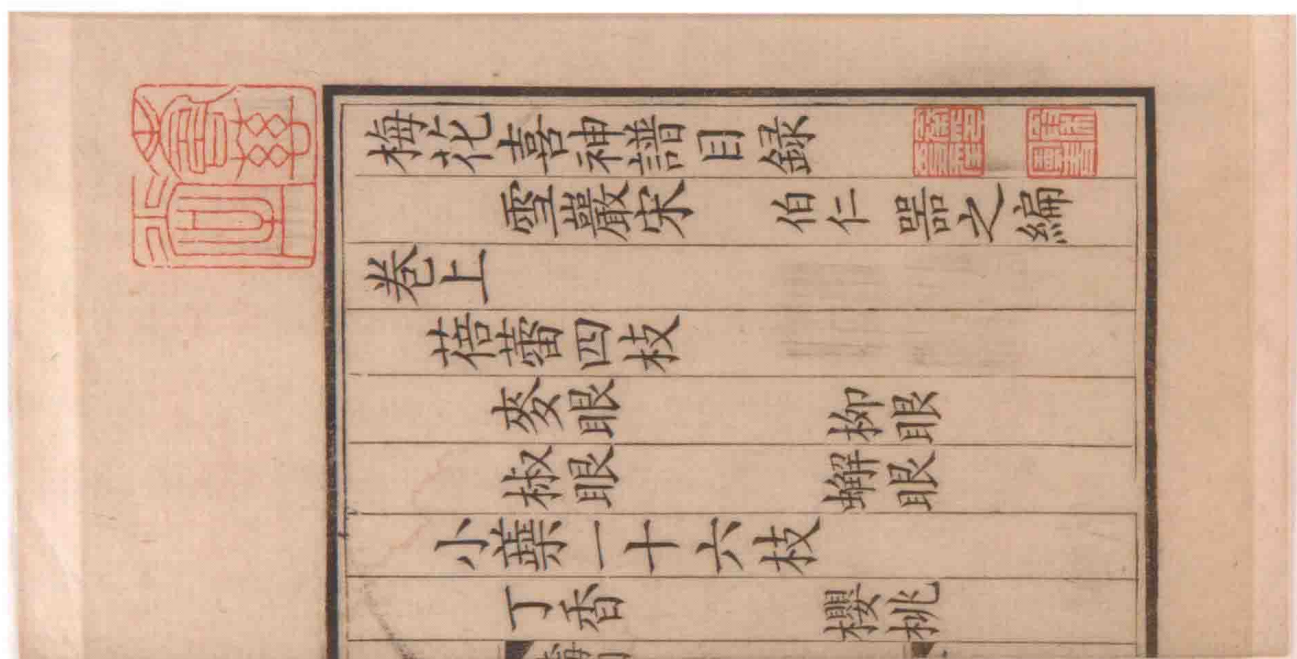 梅花喜神譜目録
雪巖宋 伯仁 器之編
卷上
蓓蕾四枝
麥眼 柳眼
椒眼 蠏眼
小蘂一十六枝
丁香 櫻桃